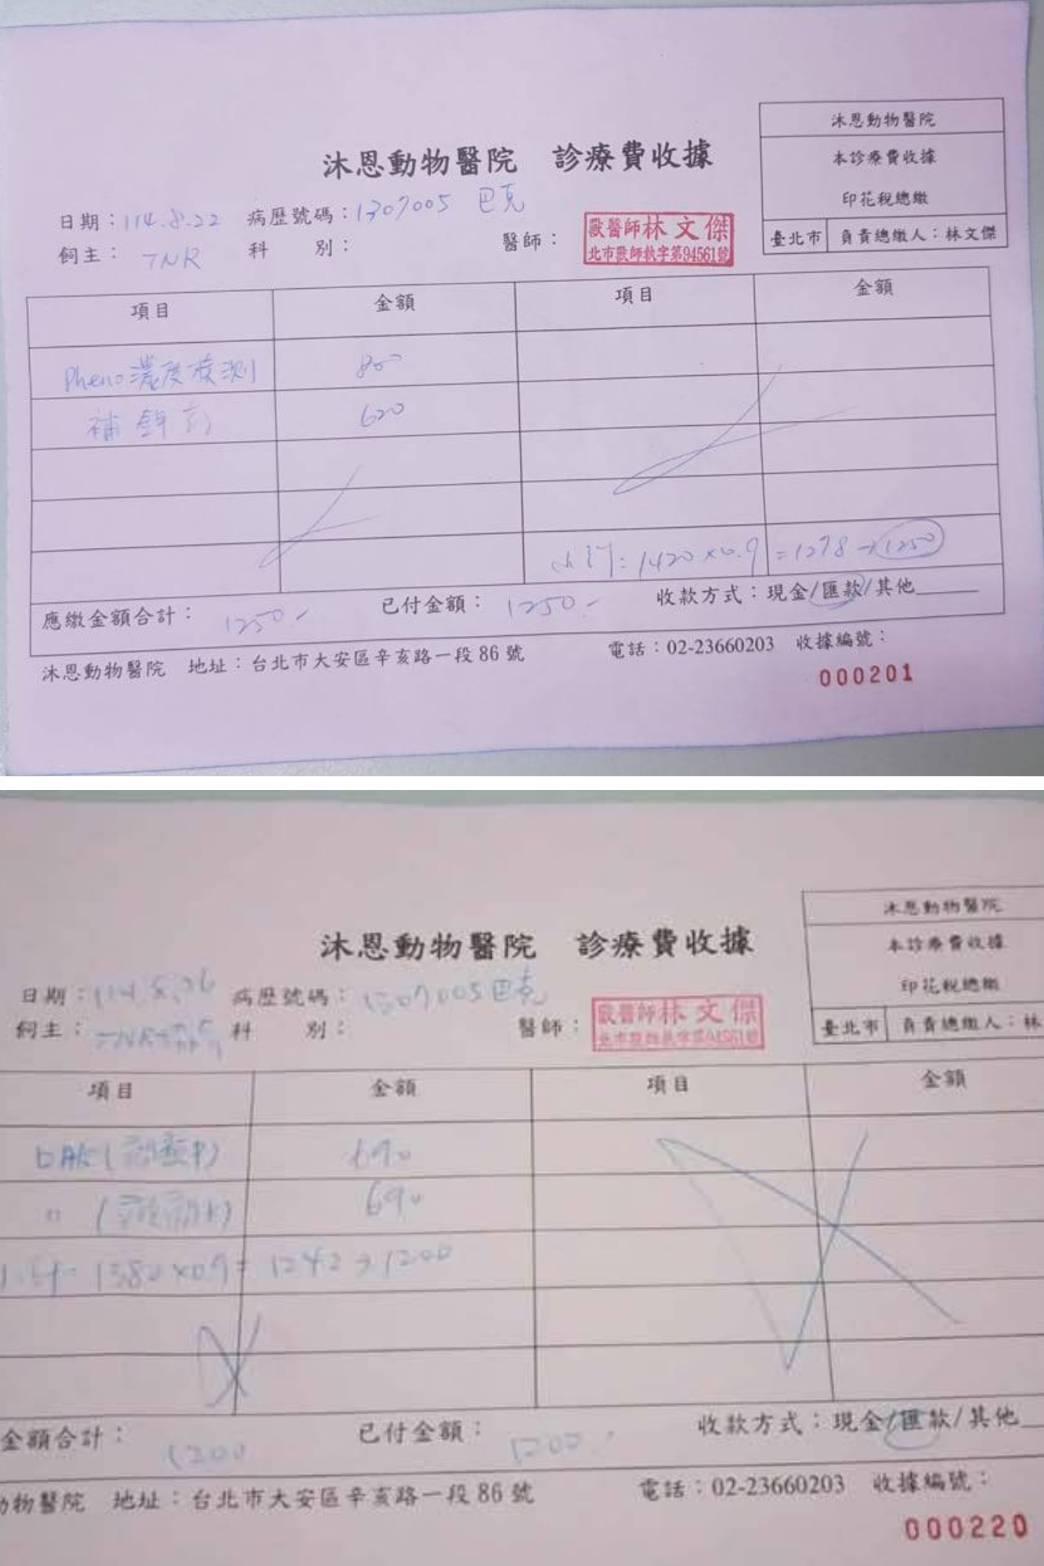 沐恩動物醫院
本診療費收據
印花稅總繳
臺北市 負責總繳人：林文傑
沐恩動物醫院 診療費收據
日期：114.8.22 病歷號碼：1307005 巴克
飼主： TNR 科 別： 醫師： 獸醫師林文傑
北市獸師執字第94561號
項目 金額 項目 金額
Pheno濃度檢測 800
補鉀 620
小計：1420×0.9 =1278→1250
應繳金額合計： 1250- 已付金額： 1250- 收款方式：現金/匯款/其他
沐恩動物醫院 地址：台北市大安區辛亥路一段86號 電話：02-23660203 收據編號：
000201
沐恩動物醫院
本診療費收據
印花稅總繳
臺北市 負責總繳人：林
沐恩動物醫院 診療費收據
日期：114.8.26 病歷號碼：1307005 巴克
飼主： TNR 科 別： 醫師： 獸醫師林文傑
北市獸師執字第94561號
項目 金額 項目 金額
口服 690
〃 690
1380×0.9= 1242→1200
金額合計： 1200 已付金額： 1200 收款方式：現金/匯款/其他
物醫院 地址：台北市大安區辛亥路一段86號 電話：02-23660203 收據編號：
000220